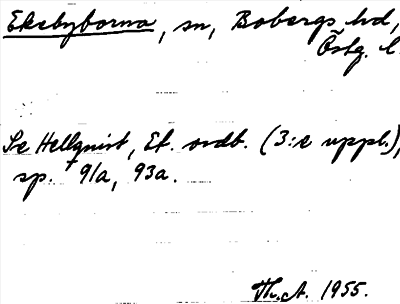 Ekebyborna, sn, Bobergs hd,
Östg. l
Se Hellquist, Et. ordb. (3:e uppl.),
sp. 91a, 93a.
Th. A. 1955.